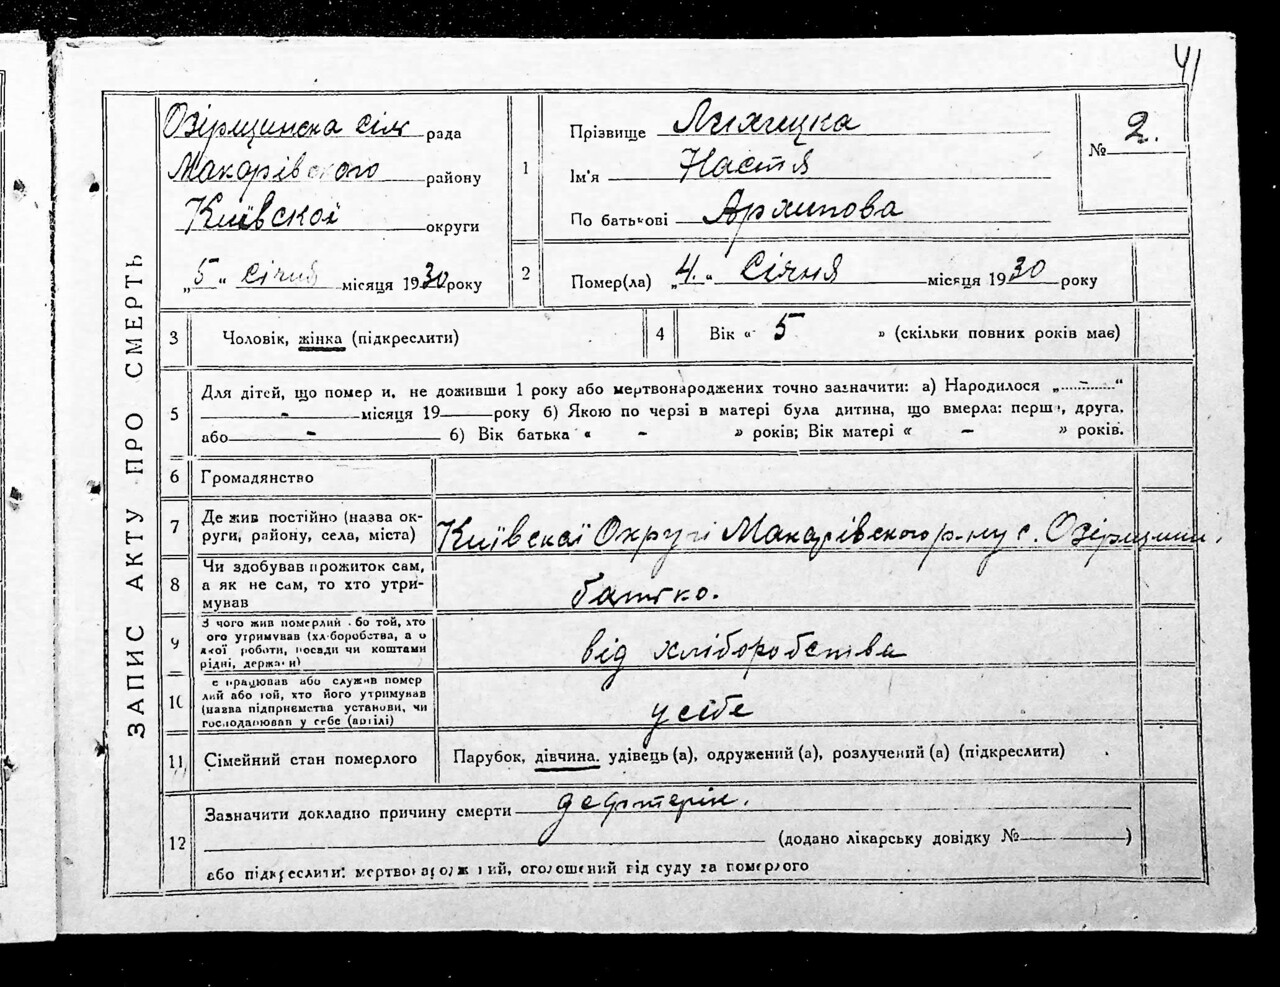 41
ЗАПИС АКТУ ПРО СМЕРТЬ
Озірщинска сіл рада
Макарівского району
Київскої округи
„5“ січня місяця 1930 року
1
Прізвище Лихицка
Ім'я Настя
По батькові Архипова
№ 2.
2
Помер(ла) „4.“ Січня місяця 1930 року
3 Чоловік, жінка (підкреслити)
4 Вік « 5 » (скільки повних років має)
5
Для дітей, що помер и, не доживши 1 року або мертвонароджених точно зазначити: а) Народилося „ - “
- місяця 19 року б) Якою по черзі в матері була дитина, що вмерла: перш , друга,
або - б) Вік батька « - » років; Вік матері « - » років.
6 Громадянство
7
Де жив постійно (назва ок-
руги, району, села, міста)
Київскої Округі Макарівского р-ну с. Озірщини.
8
Чи здобував прожиток сам,
а як не сам, то хто утри-
мував
батько.
9
З чого жив померлий або той, хто
ого утримував (хл боробства, а о
якої роботи, посади чи коштами
рідні, держа и)
від хліборобства
10
е працював або служив помер
лий або той, хто його утримував
(назва підприємства установи, чи
господарював у себе (артілі)
у себе
11 Сімейний стан померлого
Парубок, дівчина, удівець (а), одружений (а), розлучений (а) (підкреслити)
12
Зазначити докладно причину смерти дефтерія.
(додано лікарську довідку № )
або підкреслити: мертвонароджений, оголошений від суду за померлого